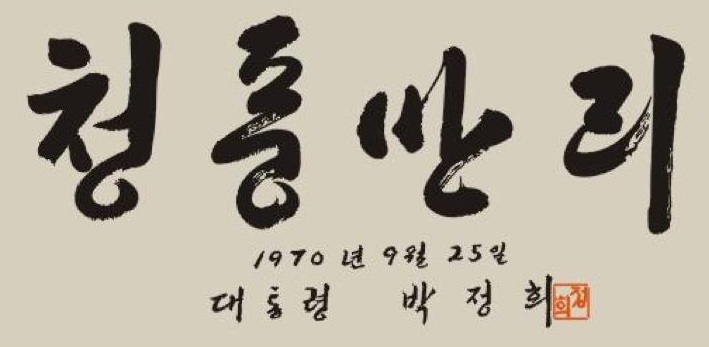 청풍만리
1970년 9월 25일
대통령 박정희
정희